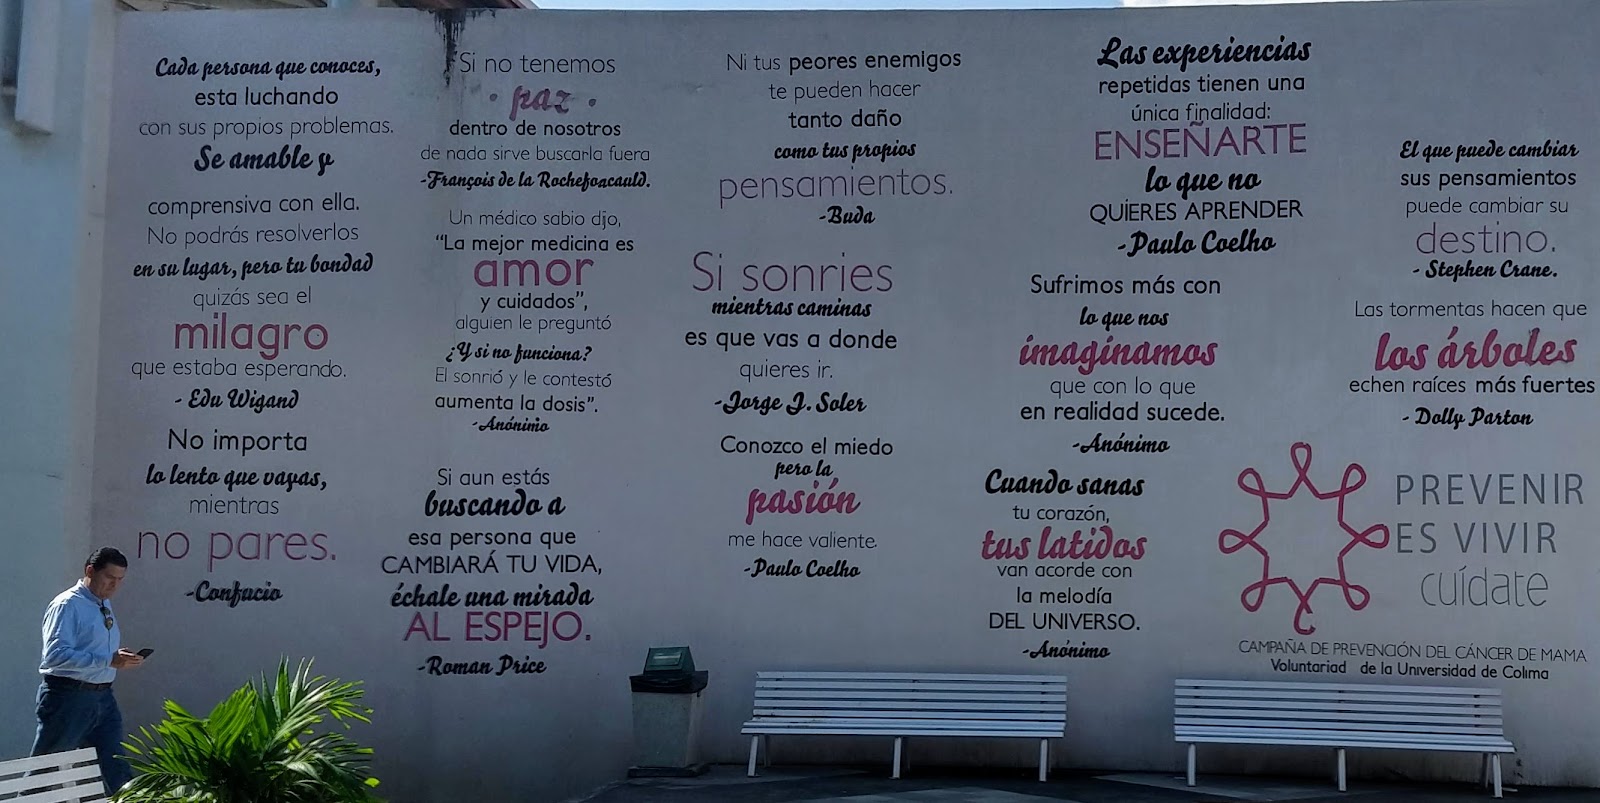 Cada persona que conoces,
esta luchando
con sus propios problemas.
Se amable y
comprensiva con ella.
No podrás resolverlos
en su lugar, pero tu bondad
quizás sea el
milagro
que estaba esperando.
- Edu Wigand
No importa
lo lento que vayas,
mientras
no pares.
-Confucio
Si no tenemos
· paz ·
dentro de nosotros
de nada sirve buscarla fuera
-François de la Rochefoacauld.
Un médico sabio djo,
“La mejor medicina es
amor
y cuidados”,
alguien le preguntó
¿Y si no funciona?
El sonrió y le contestó
aumenta la dosis”.
-Anónimo
Si aun estás
buscando a
esa persona que
CAMBIARÁ TU VIDA,
échale una mirada
AL ESPEJO.
-Roman Price
Ni tus peores enemigos
te pueden hacer
tanto daño
como tus propios
pensamientos.
-Buda
Si sonries
mientras caminas
es que vas a donde
quieres ir.
-Jorge J. Soler
Conozco el miedo
pero la
pasión
me hace valiente.
-Paulo Coelho
Las experiencias
repetidas tienen una
única finalidad:
ENSEÑARTE
lo que no
QUIERES APRENDER
-Paulo Coelho
Sufrimos más con
lo que nos
imaginamos
que con lo que
en realidad sucede.
-Anónimo
Cuando sanas
tu corazón,
tus latidos
van acorde con
la melodía
DEL UNIVERSO.
-Anónimo
El que puede cambiar
sus pensamientos
puede cambiar su
destino.
- Stephen Crane.
Las tormentas hacen que
los árboles
echen raíces más fuertes
- Dolly Parton
PREVENIR
ES VIVIR
cuídate
CAMPAÑA DE PREVENCIÓN DEL CÁNCER DE MAMA
Voluntariad de la Universidad de Colima